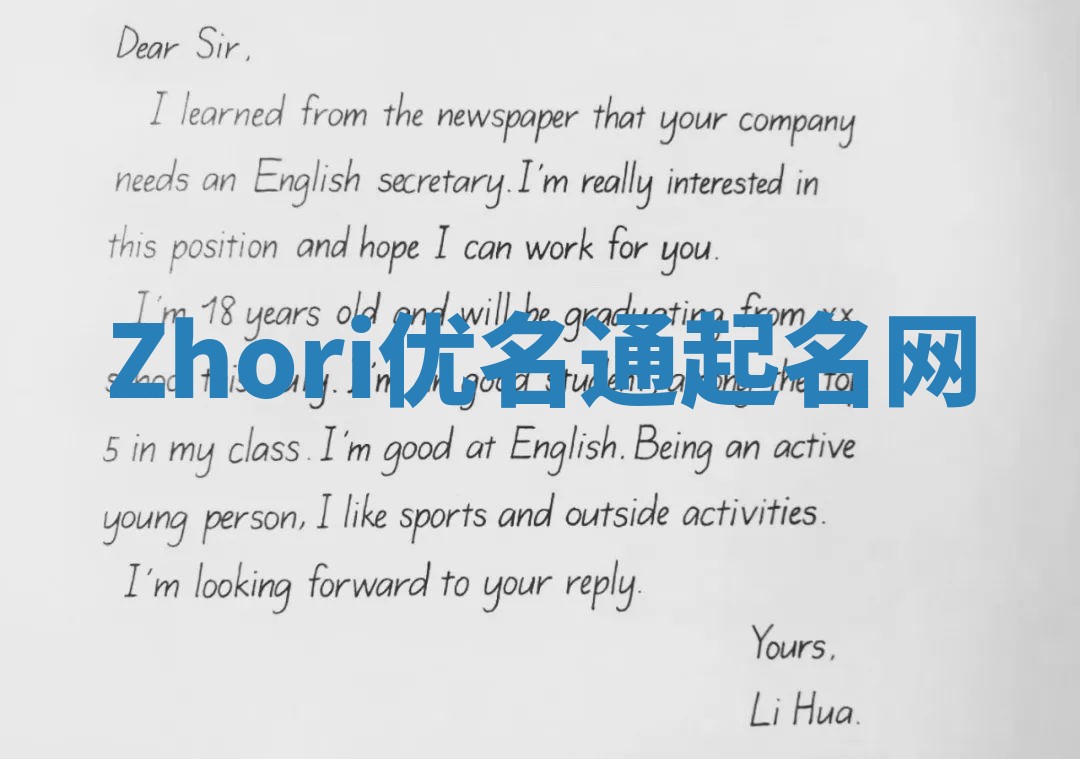 Dear Sir,
I learned from the newspaper that your company
needs an English secretary. I'm really interested in
this position and hope I can work for you.
I'm 18 years old and will be graduating from xx
Zhori优名通起名网
school this July. I'm a good student, among the top
5 in my class. I'm good at English. Being an active
young person, I like sports and outside activities.
I'm looking forward to your reply.
Yours,
Li Hua.